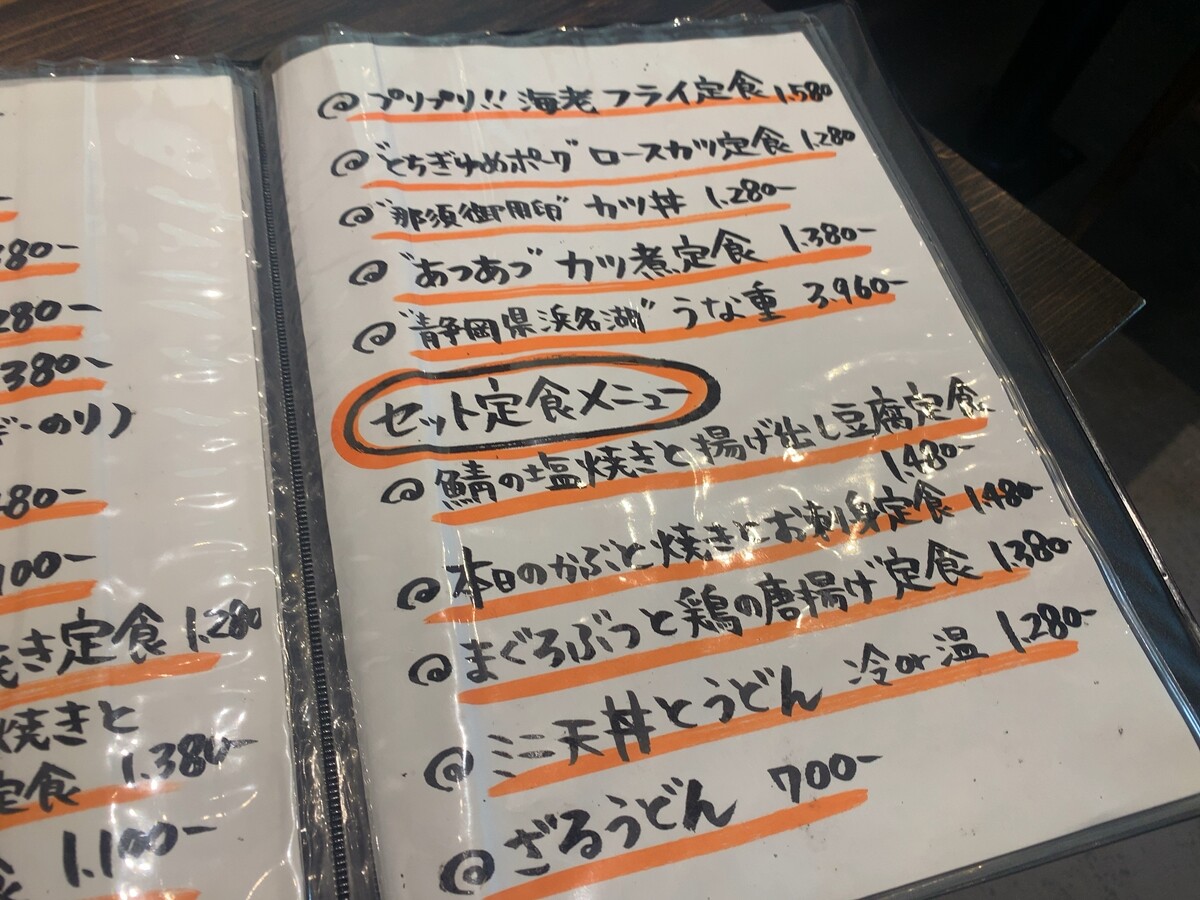 380-
280-
380-
のり)
480-
100-
き定食 1.280
焼きと
定食 1.380-
食 1.100-
@プリプリ!! 海老フライ定食 1.580
@"とちぎゆめポーク" ロースカツ定食 1.280
@"那須御用卵" カツ丼 1.280-
@"あつあつ" カツ煮定食 1.380-
@"静岡県浜名湖" うな重 3.960-
セット定食メニュー
@鯖の塩焼きと揚げ出し豆腐定食
1.480-
@本日のかぶと焼きとお刺身定食 1.480-
@まぐろぶつと鶏の唐揚げ定食 1.380-
@ミニ天丼とうどん 冷or温 1.280-
@ざるうどん 700-